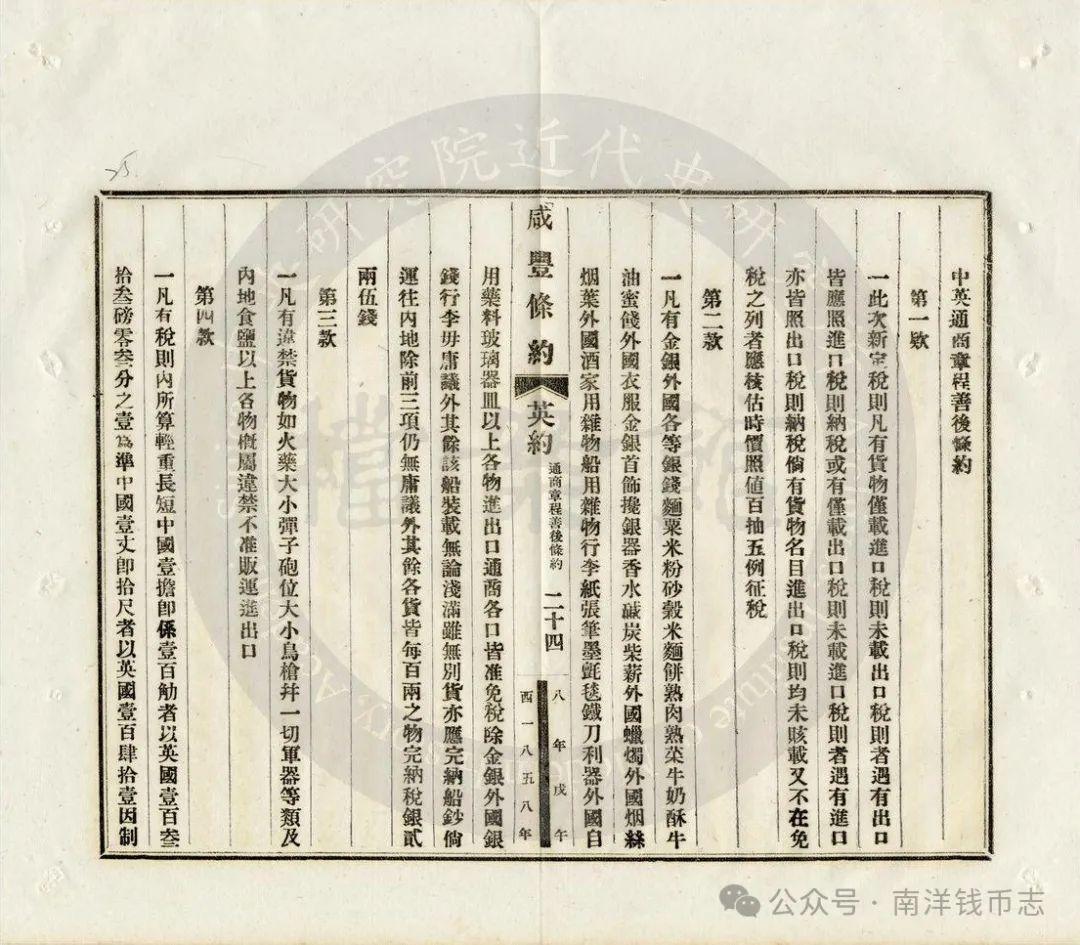 中英通商章程善後條約
第一欵
一此次新定稅則凡有貨物僅載進口稅則未載出口稅則者遇有出口
皆應照進口稅則納稅或有僅載出口稅則未載進口稅則者遇有進口
亦皆照出口稅則納稅倘有貨物名目進出口稅則均未賅載又不在免
稅之列者應核估時價照値百抽五例征稅
第二款
一凡有金銀外國各等銀錢麵粟米粉砂穀米麵餅熟肉熟菜牛奶酥牛
油蜜餞外國衣服金銀首飾攙銀器香水碱炭柴薪外國蠟燭外國烟絲
烟葉外國酒家用雜物船用雜物行李紙張筆墨氈毯鐵刀利器外國自
咸豐條約
英約
通商章程善後條約
二十四
八年戊午
西一八五八年
用藥料玻璃器皿以上各物進出口通商各口皆准免稅除金銀外國銀
錢行李毋庸議外其餘該船裝載無論淺滿雖無別貨亦應完納船鈔倘
運往內地除前三項仍無庸議外其餘各貨皆每百兩之物完納稅銀貳
兩伍錢
第三款
一凡有違禁貨物如火藥大小彈子砲位大小鳥槍幷一切軍器等類及
內地食鹽以上各物槪屬違禁不准販運進出口
第四款
一凡有稅則內所算輕重長短中國壹擔卽係壹百觔者以英國壹百叁
拾叁磅零叁分之壹爲準中國壹丈卽拾尺者以英國壹百肆拾壹因制
25
研究院近代史研
檔案館
公众号·南洋钱币志